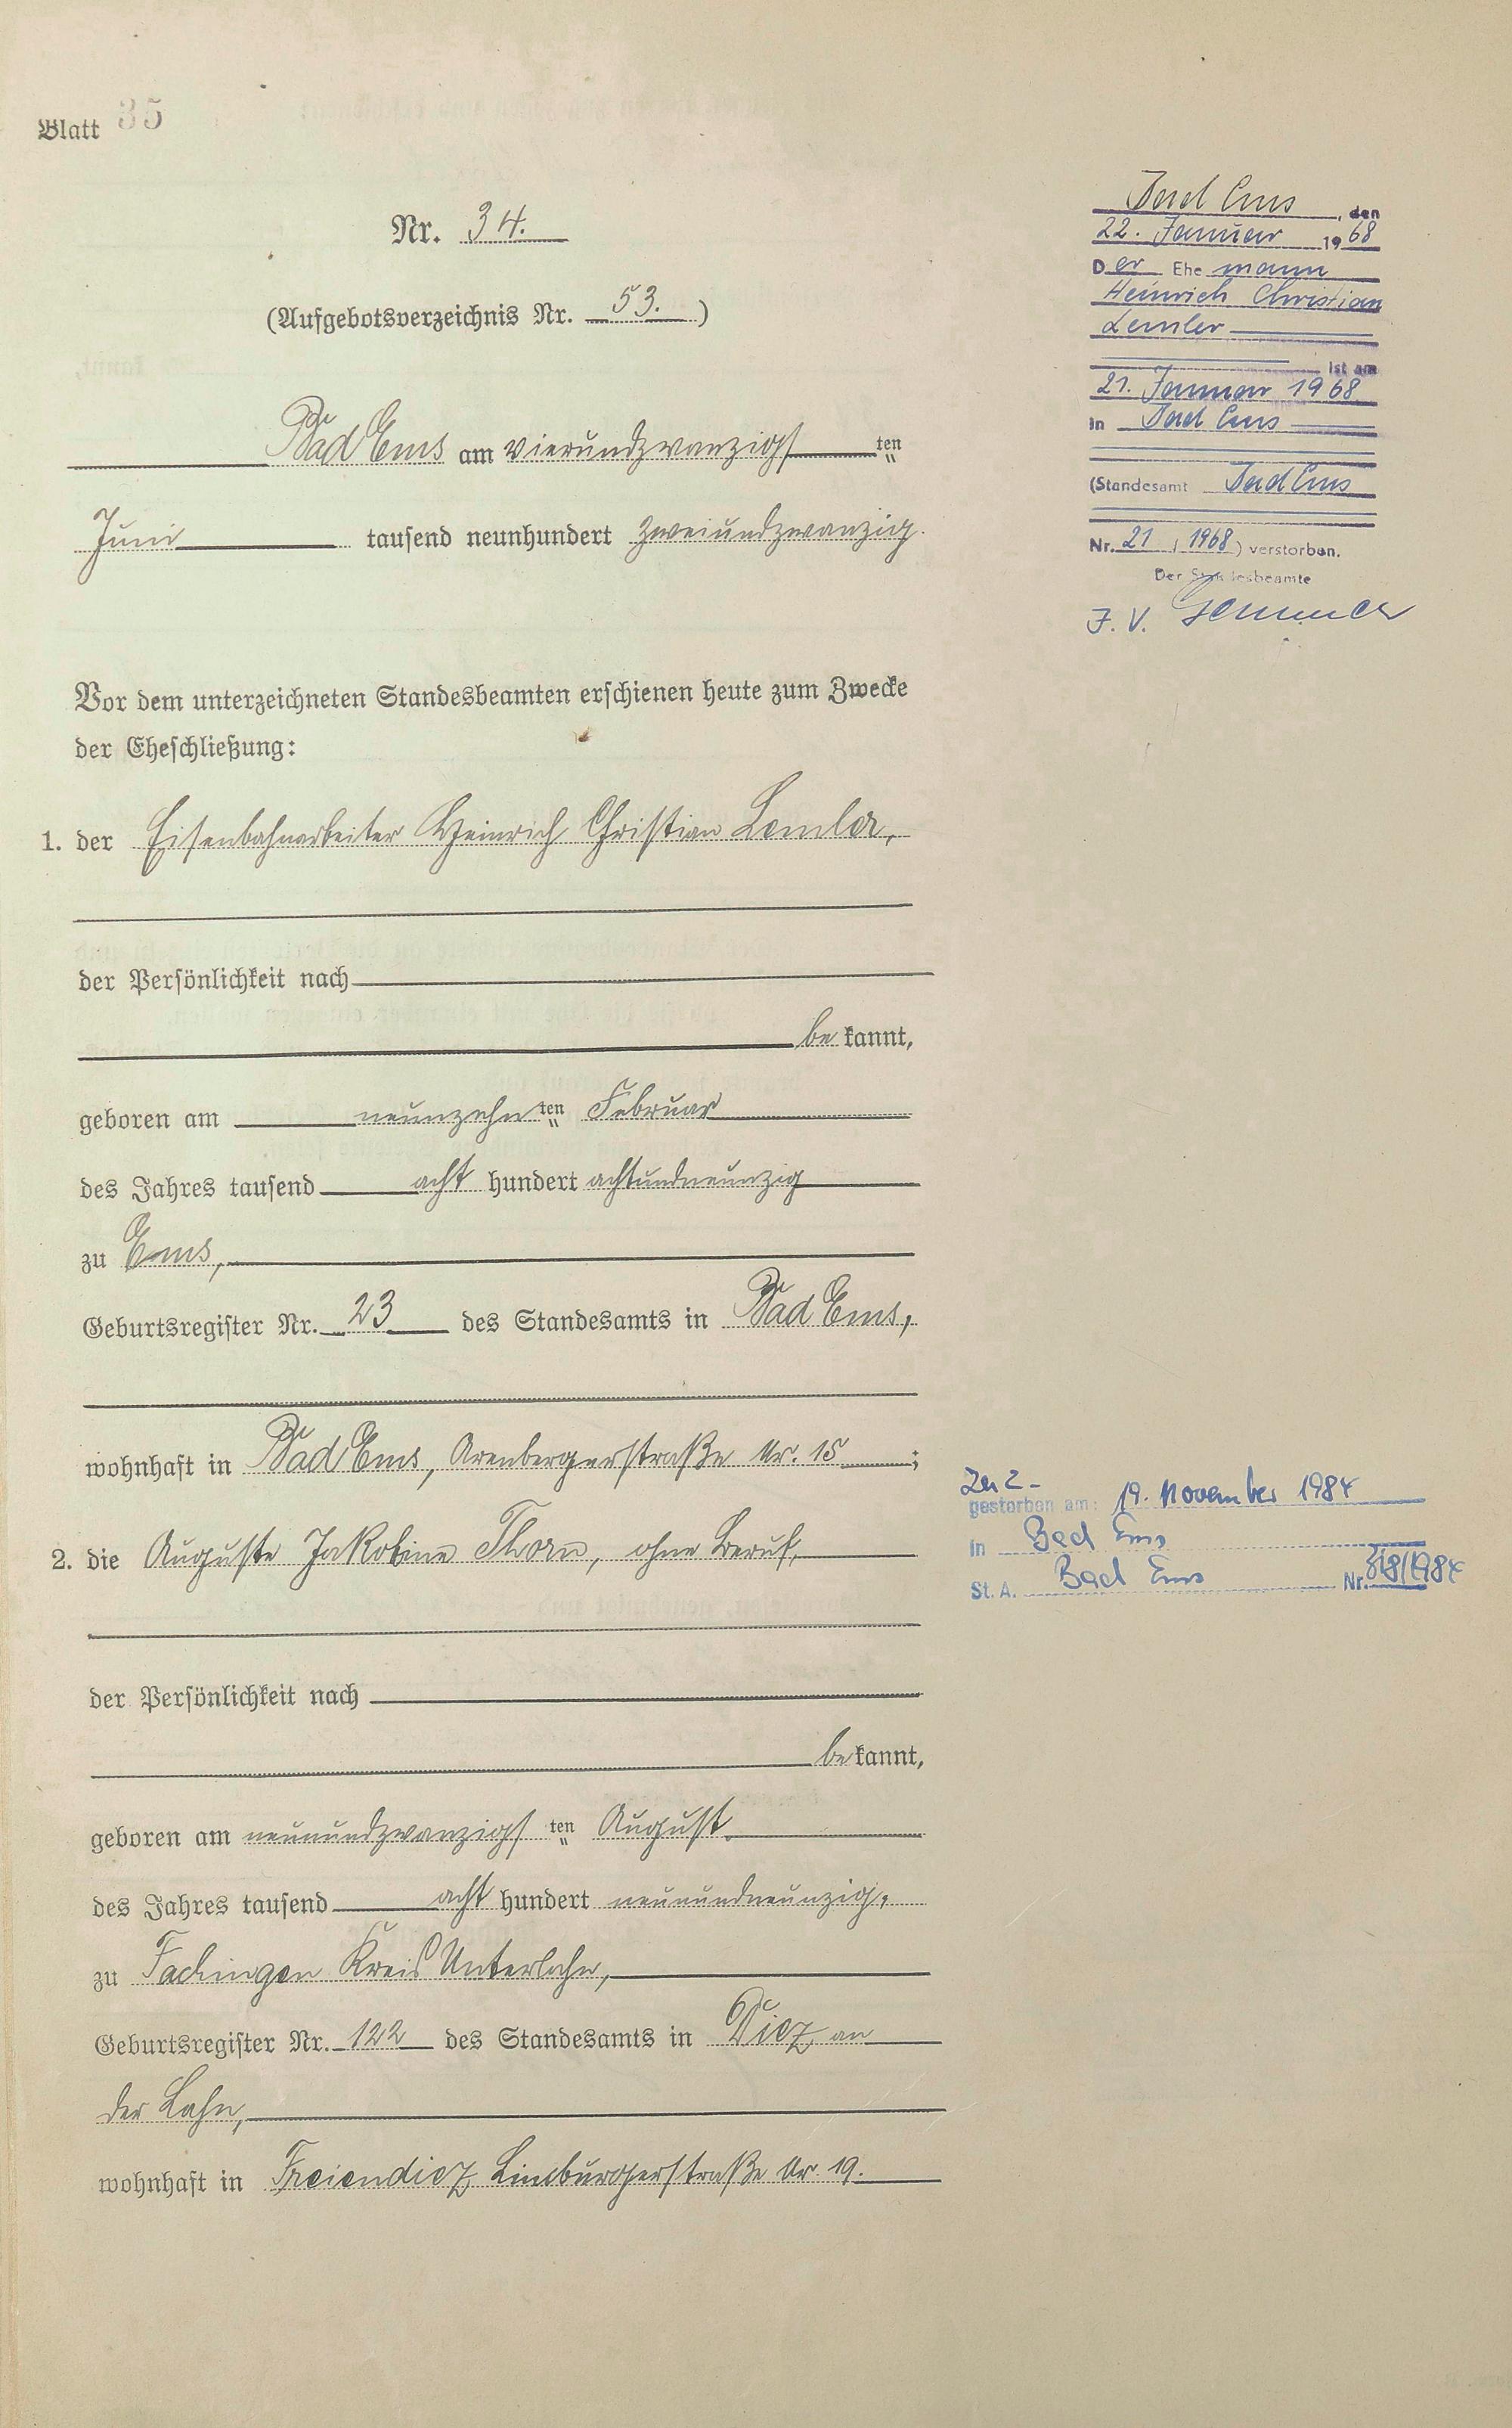 Blatt 35
Nr. 34.
(Aufgebotsverzeichnis Nr. 53.)
Bad Ems am vierundzwanzigsten
Juni tausend neunhundert zweiundzwanzig.
Vor dem unterzeichneten Standesbeamten erschienen heute zum Zwecke
der Eheschließung:
1. der Eisenbahnarbeiter Heinrich Christian Lemler,
der Persönlichkeit nach
bekannt,
geboren am neunzehnten Februar
des Jahres tausend acht hundert achtundneunzig
zu Ems,
Geburtsregister Nr. 23 des Standesamts in Bad Ems,
wohnhaft in Bad Ems, Arenbergerstraße Nr. 15;
2. die Auguste Jakobine Thorn, ohne Beruf,
der Persönlichkeit nach
bekannt,
geboren am neunundzwanzigsten August
des Jahres tausend acht hundert neunundneunzig,
zu Fachingen Kreis Unterlahn,
Geburtsregister Nr. 122 des Standesamts in Diez an
der Lahn,
wohnhaft in Freiendiez, Limburgerstraße Nr. 19.
Bad Ems, den
22. Januar 1968
Der Ehemann
Heinrich Christian
Lemler
ist am
21. Januar 1968
in Bad Ems
(Standesamt Bad Ems
Nr. 21 / 1968) verstorben.
Der Standesbeamte
J. V.
Zu 2 -
gestorben am: 19. November 1984
in Bad Ems
St. A. Bad Ems Nr. 318/1984